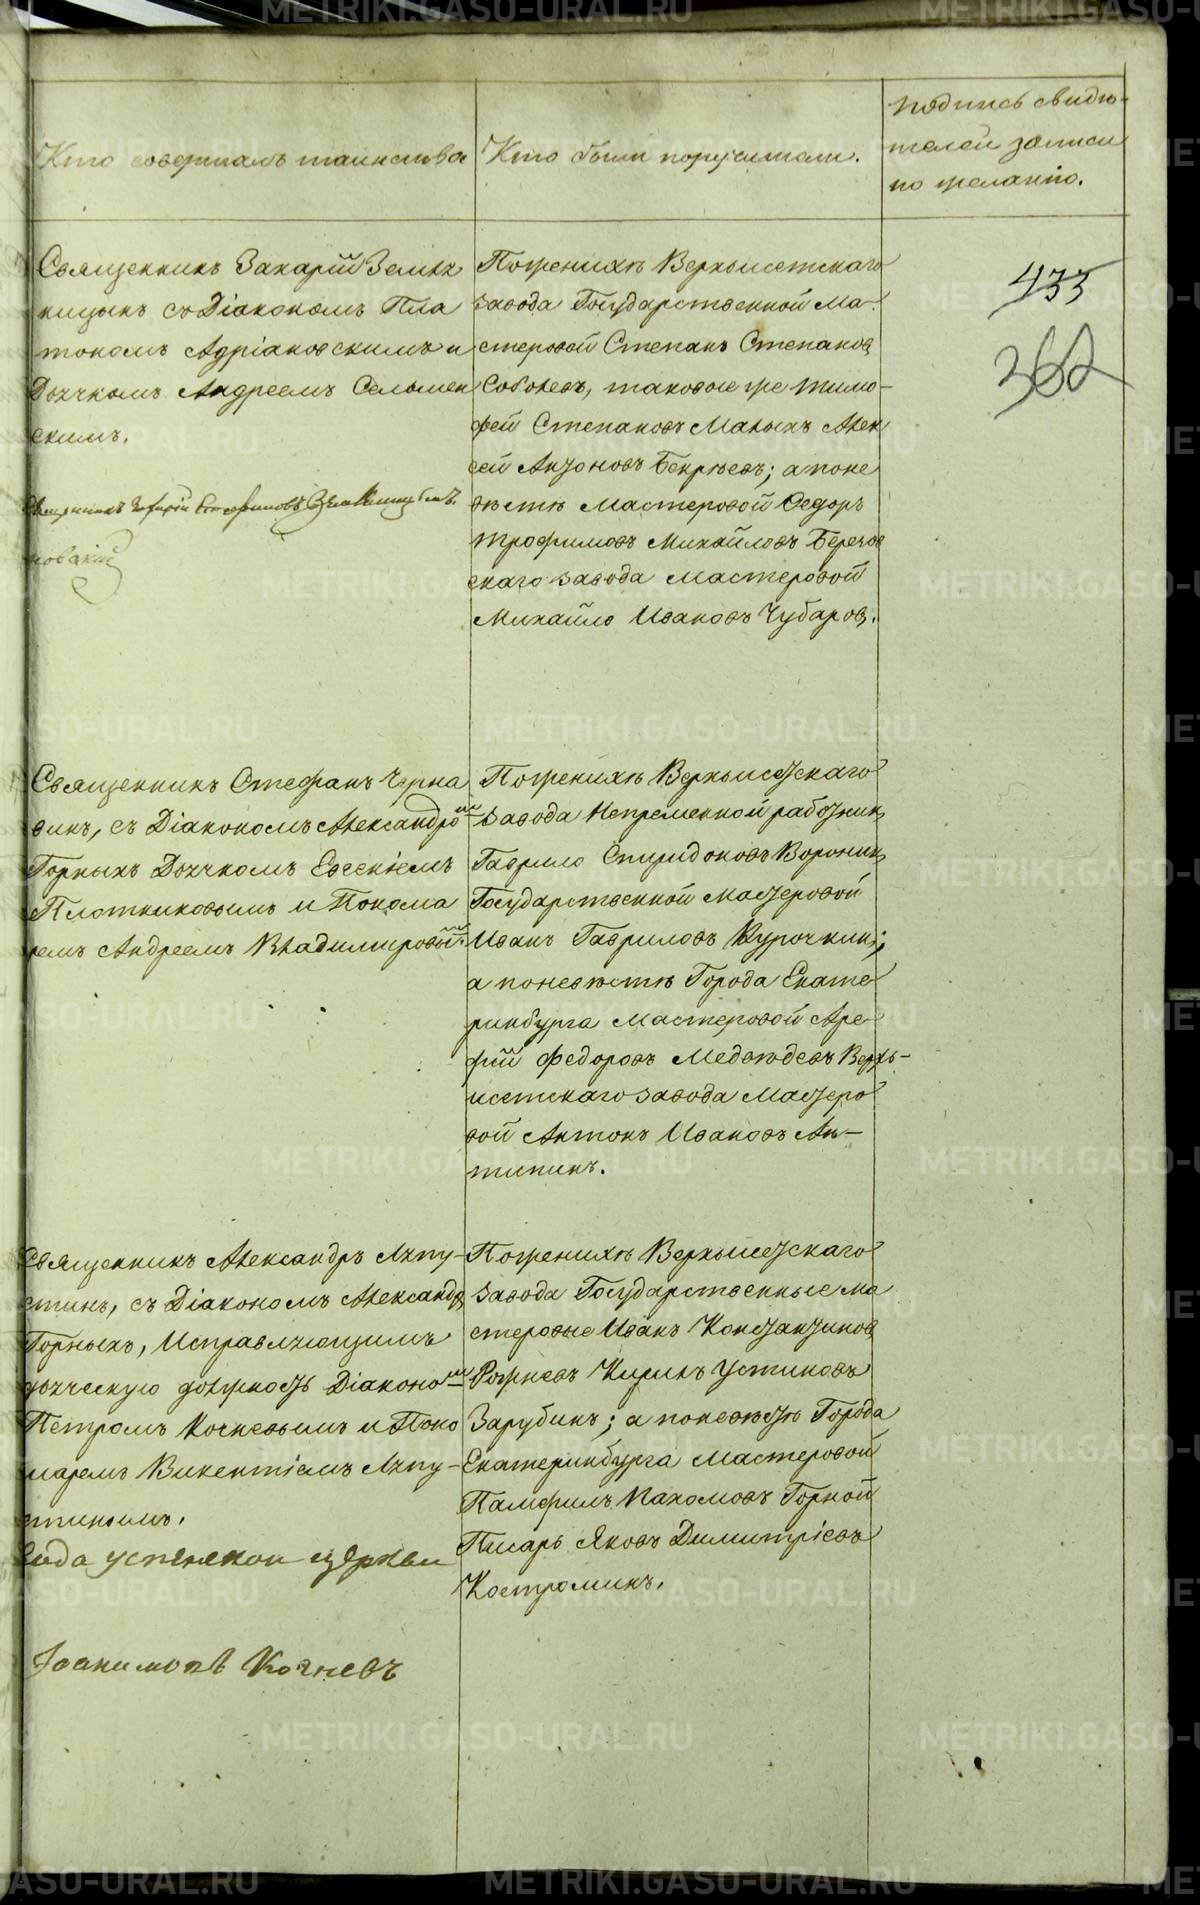 Кто совершалъ таинства
Кто были поручители.
Подпись свидѣ-
телей записи
по желанію.
433
362
Священникъ Захарій Земля
ницынъ съ Діакономъ Пла
тономъ Адріановскимъ и
Дьячкомъ Андреемъ Сельмен
скимъ.
Священникъ Захарій
Поженихѣ Верхъисетскаго
завода Государственной Ма-
стеровой Степанъ Степановъ
Соболевъ, таковые же Тимо-
фей Степановъ Малыхъ Алек
сей Антоновъ Бекрѣевъ; а поне
вѣстѣ Мастеровой Ѳедоръ
Трофимовъ Михайловъ Березов
скаго завода Мастеровой
Михайло Ивановъ Чубаровъ.
Священникъ Стефанъ Черна
винъ, съ Діакономъ Александромъ
Горныхъ Дьячкомъ Евгеніемъ
Плотниковымъ и Понома
ремъ Андреемъ Владимировымъ.
Поженихѣ Верхъисетскаго
завода Непременной работникъ
Гаврило Спиридоновъ Воронинъ
Государственной Мастеровой
Иванъ Гавриловъ Курочкинъ;
а поневѣстѣ Города Екате
ринбурга Мастеровой Аре
фій Федоровъ Медвѣдевъ Верхъ-
исетскаго завода Мастеро
вой Антонъ Ивановъ Ан-
типинъ.
Священникъ Александръ Ляпу-
стинъ, съ Діакономъ Александр
Горныхъ, Исправляющимъ
дьяческую должность Діакономъ
Петромъ Кочневымъ и Поно
маремъ Викентіемъ Ляпу-
стинымъ.
успенской церкви
Іоакимовъ Кочневъ
Поженихѣ Верхъисетскаго
завода Государственные ма
стеровые Иванъ Константиновъ
Рожневъ Кирилъ Устиновъ
Зарубинъ; а поневѣстѣ Города
Екатеринбурга Мастеровой
Памфилъ Пахомовъ Горной
Писарь Яковъ Димитріевъ
Костроминъ.
METRIKI.GASO-URAL.RU